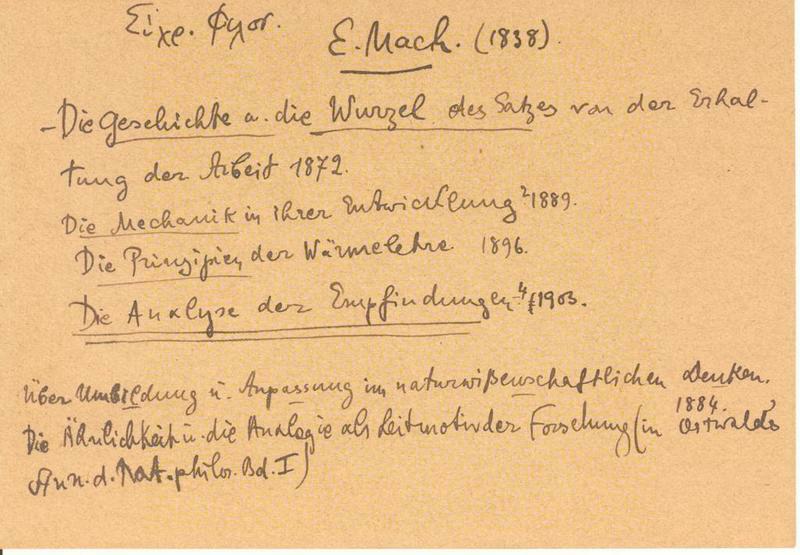 Σύγχρ. Φιλοσ.
E. Mach. (1838).
- Die Geschichte u. die Wurzel des Satzes von der Erhal-
tung der Arbeit 1872.
Die Mechanik in ihrer Entwicklung ²1889.
Die Prinzipien der Wärmelehre 1896.
Die Analyse der Empfindungen ⁴1903.
Über Umbildung u. Anpassung im naturwißenschaftlichen Denken,
1884.
Die Ähnlichkeit u. die Analogie als Leitmotiv der Forschung (in Ostwalds
Ann. d. Nat. philos. Bd. I)